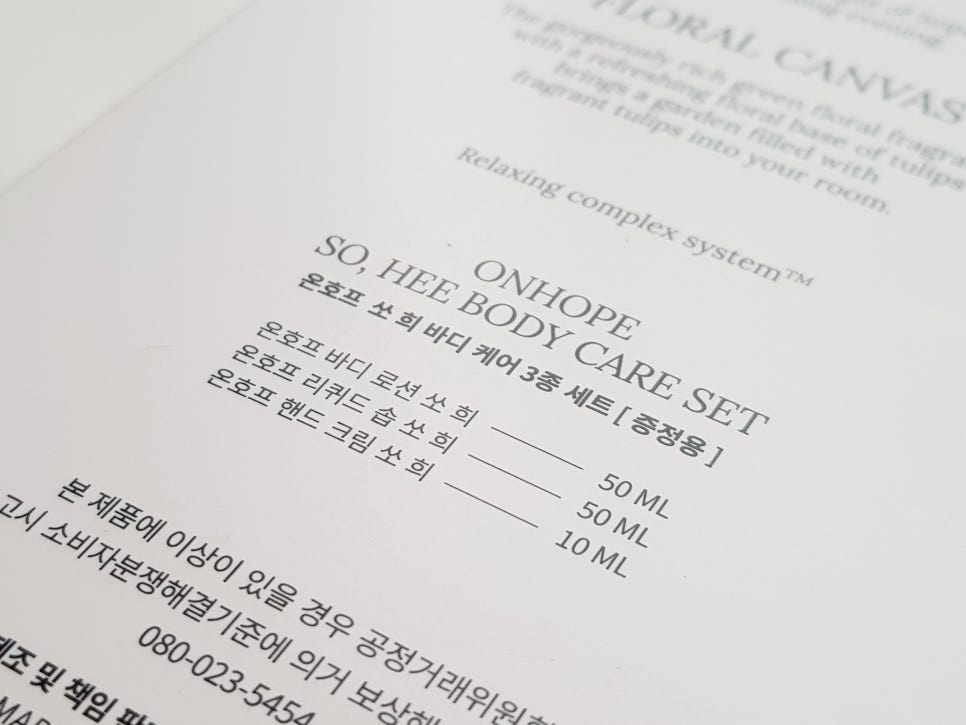 FLORAL CANVAS
The gorgeously rich green floral
with a refreshing floral base of tulips
brings a garden filled with
fragrant tulips into your room.
Relaxing complex system™
ONHOPE
SO, HEE BODY CARE SET
온호프 쏘 희 바디 케어 3종 세트 [ 증정용 ]
온호프 바디 로션 쏘 희 50 ML
온호프 리퀴드 솝 쏘 희 50 ML
온호프 핸드 크림 쏘 희 10 ML
본 제품에 이상이 있을 경우 공정거래위원회
고시 소비자분쟁해결기준에 의거
080-023-5454
제조 및 책임